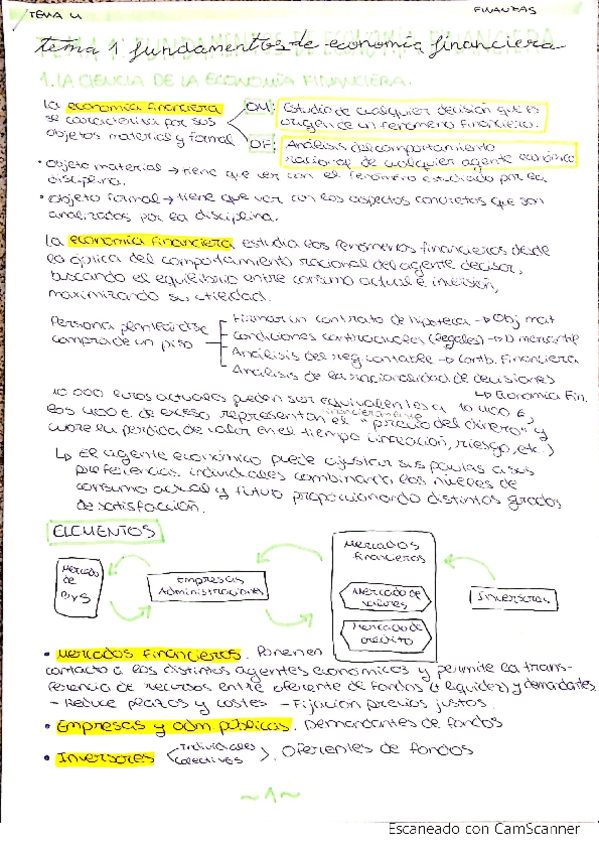 TEMA 4
FINANZAS
TEMA 1: FUNDAMENTOS DE ECONOMÍA FINANCIERA
tema 1 fundamentos de economía financiera
1. LA CIENCIA DE LA ECONOMÍA FINANCIERA.
La economía financiera
se caracteriza por sus
objetos material y formal
OM: Estudio de cualquier decisión que es
origen de un fenómeno financiero.
OF: Análisis del comportamiento
racional de cualquier agente económico
• Objeto material → tiene que ver con el fenómeno estudiado por la
disciplina.
• Objeto formal → tiene que ver con los aspectos concretos que son
analizados por la disciplina.
La economía financiera estudia los fenómenos financieros desde
la óptica del comportamiento racional del agente decisor,
buscando el equilibrio entre consumo actual e inversión,
maximizando su utilidad.
Persona planteándose
compra de un piso
Firmar un contrato de hipoteca → Obj mat
Condiciones contractuales (legales) → D mercantil
Análisis del reg contable → Contb. Financiera
Análisis de la racionalidad de decisiones
↳ Economía Fin.
10 000 euros actuales pueden ser equivalentes a 10 400 €,
financieramente
los 400 € de exceso representan el "precio del dinero" y
cubre la pérdida de valor en el tiempo (inflación, riesgo, etc.)
↳ El agente económico puede ajustar sus pautas a sus
preferencias individuales combinando los niveles de
consumo actual y futuro proporcionando distintos grados
de satisfacción.
ELEMENTOS
Mercado
de
ByS
Empresas
Administraciones
Mercados
financieros
Mercado de
valores
Mercado de
crédito
Inversores
• Mercados financieros. Ponen en
contacto a los distintos agentes económicos y permite la trans-
ferencia de recursos entre oferente de fondos (+ liquidez) y demandantes
- Reduce plazos y costes - Fijación precios justos.
• Empresas y adm públicas. Demandantes de fondos
• Inversores
Individuales
Colectivos
. Oferentes de fondos
~1~
Escaneado con CamScanner